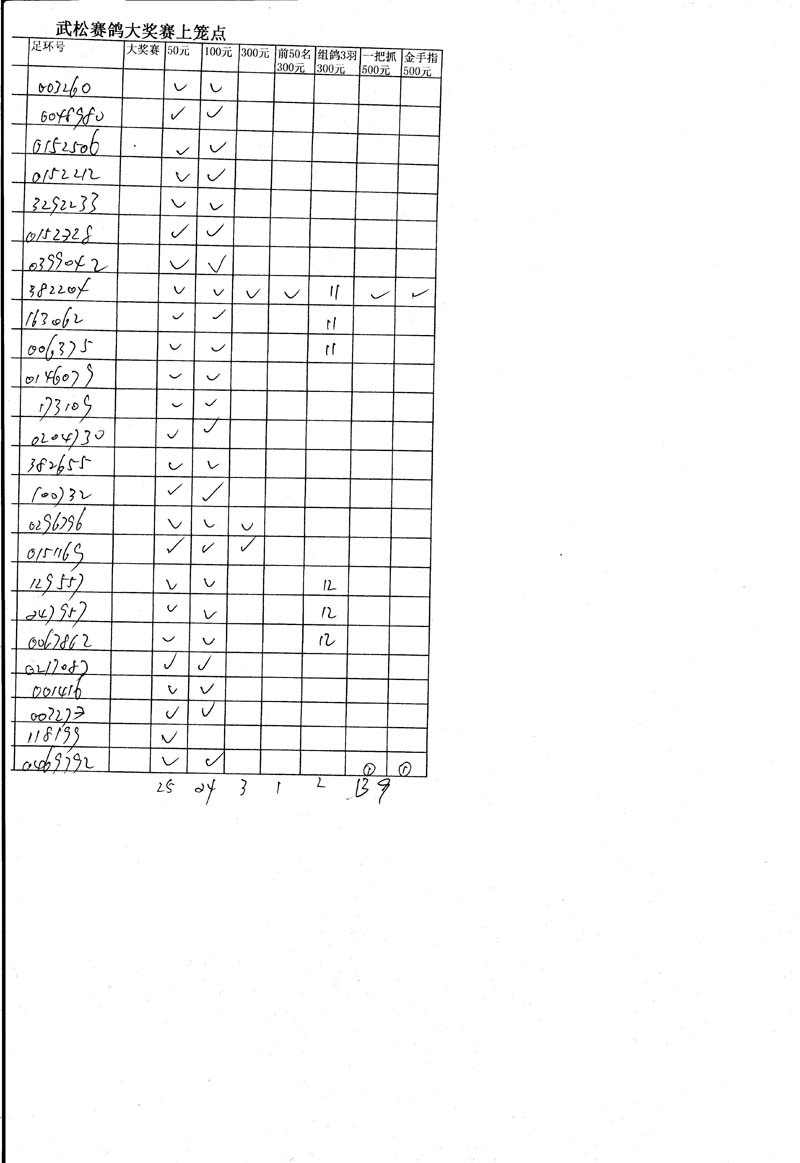 武松赛鸽大奖赛上笼点
足环号 大奖赛 50元 100元 300元 前50名300元 组鸽3羽300元 一把抓500元 金手指500元
003260 ✓ ✓
0048980 ✓ ✓
0152506 ✓ ✓
0152212 ✓ ✓
3292233 ✓ ✓
0152728 ✓ ✓
0399042 ✓ ✓
382204 ✓ ✓ ✓ ✓ 11 ✓ ✓
163062 ✓ ✓ 11
006375 ✓ ✓ 11
0146079 ✓ ✓
173109 ✓ ✓
0204730 ✓ ✓
382655 ✓ ✓
100732 ✓ ✓
0296796 ✓ ✓ ✓
0151169 ✓ ✓ ✓
129557 ✓ ✓ 12
247957 ✓ ✓ 12
0067862 ✓ ✓ 12
0217087 ✓ ✓
001416 ✓ ✓
✓ ✓
118199 ✓
0469792 ✓ ✓ ① ①
25 24 3 1 2